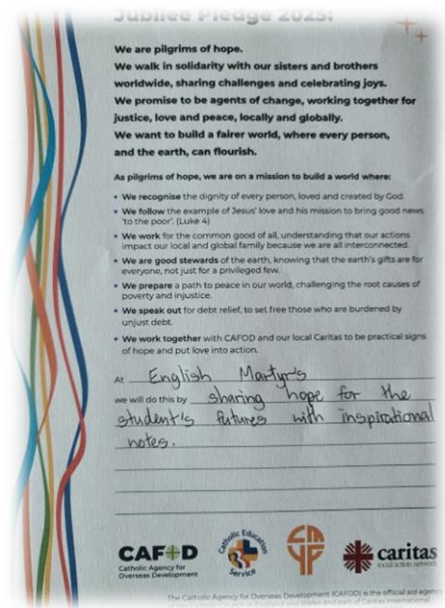 Jubilee Pledge 2025!
We are pilgrims of hope.
We walk in solidarity with our sisters and brothers
worldwide, sharing challenges and celebrating joys.
We promise to be agents of change, working together for
justice, love and peace, locally and globally.
We want to build a fairer world, where every person,
and the earth, can flourish.
As pilgrims of hope, we are on a mission to build a world where:
• We recognise the dignity of every person, loved and created by God.
• We follow the example of Jesus' love and his mission to bring good news
'to the poor'. (Luke 4)
• We work for the common good of all, understanding that our actions
impact our local and global family because we are all interconnected.
• We are good stewards of the earth, knowing that the earth's gifts are for
everyone, not just for a privileged few.
• We prepare a path to peace in our world, challenging the root causes of
poverty and injustice.
• We speak out for debt relief, to set free those who are burdened by
unjust debt.
• We work together with CAFOD and our local Caritas to be practical signs
of hope and put love into action.
At English Martyr's
we will do this by sharing hope for the
student's futures with inspirational
notes.
CAFOD
Catholic Agency for
Overseas Development
Catholic Education
Service
caritas
social action network
The Catholic Agency for Overseas Development (CAFOD) is the official aid agency